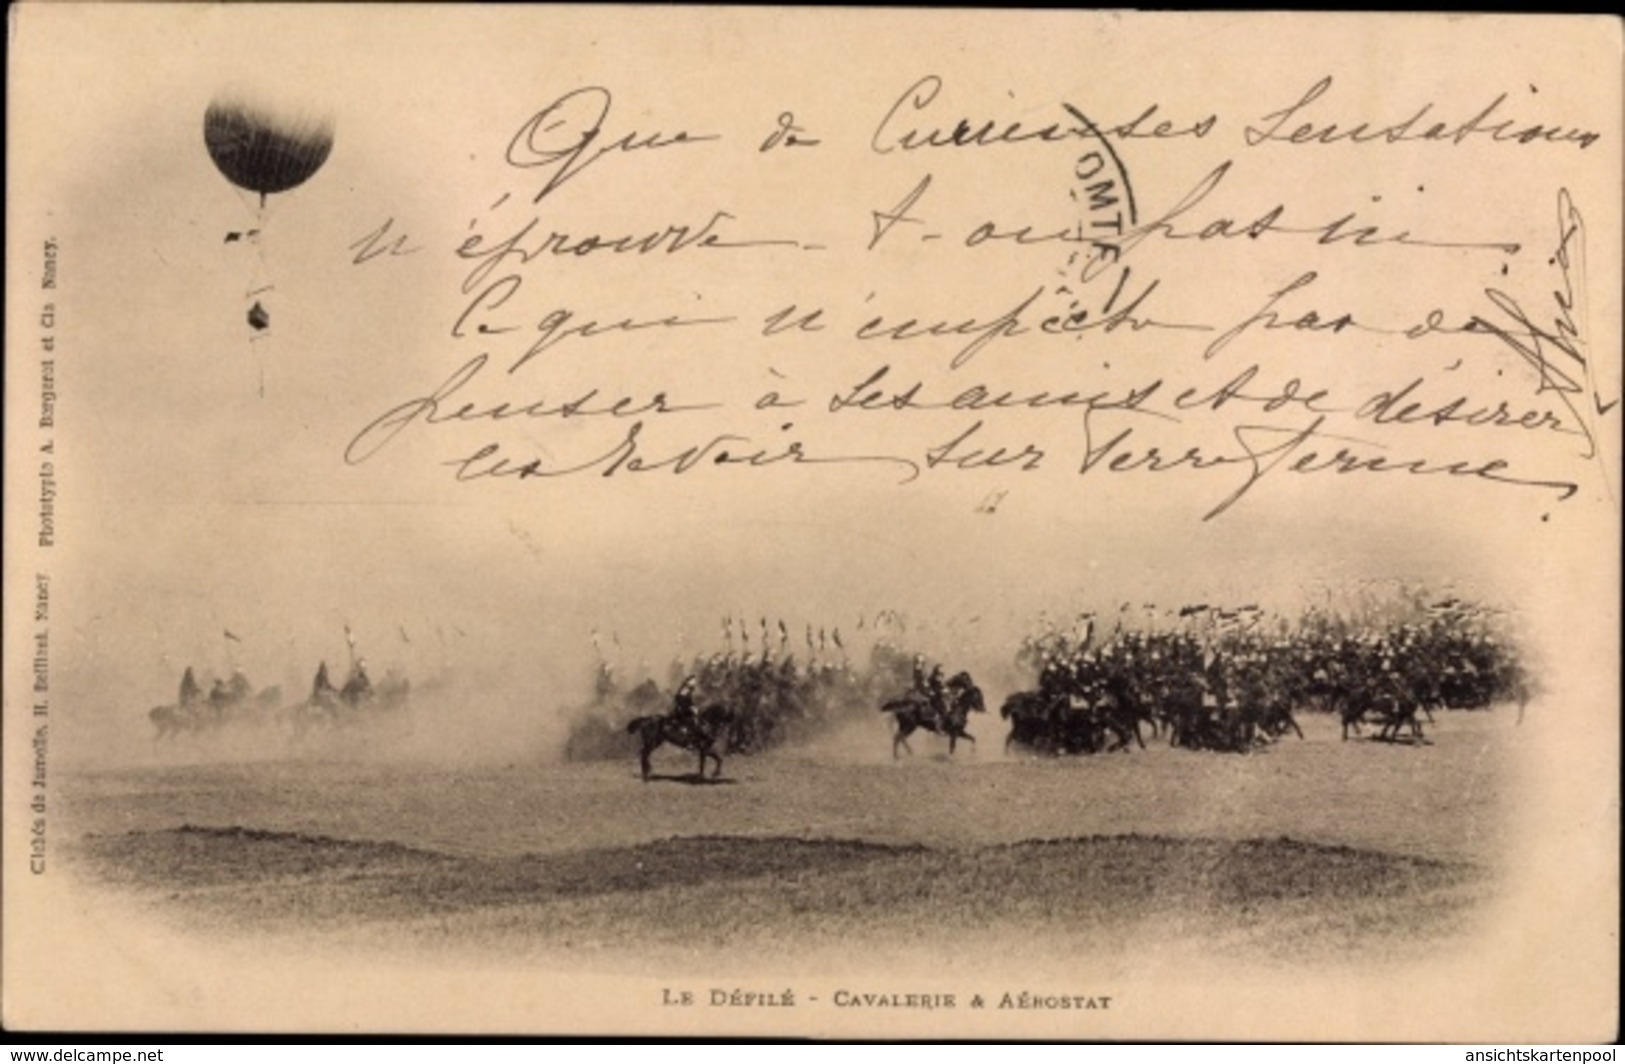 Que de Curieuses Sensations
n'éprouve-t-on pas ici
Ce qui n'empêche pas de
penser à ses amis et de désirer
les revoir sur Terre Ferme
OMTE
Clichés de H. Bellieni, Nancy Phototypie A. Bergeret et Cie Nancy.
LE DÉFILÉ - CAVALERIE & AÉROSTAT
https://www.delcampe.net
ansichtskartenpool